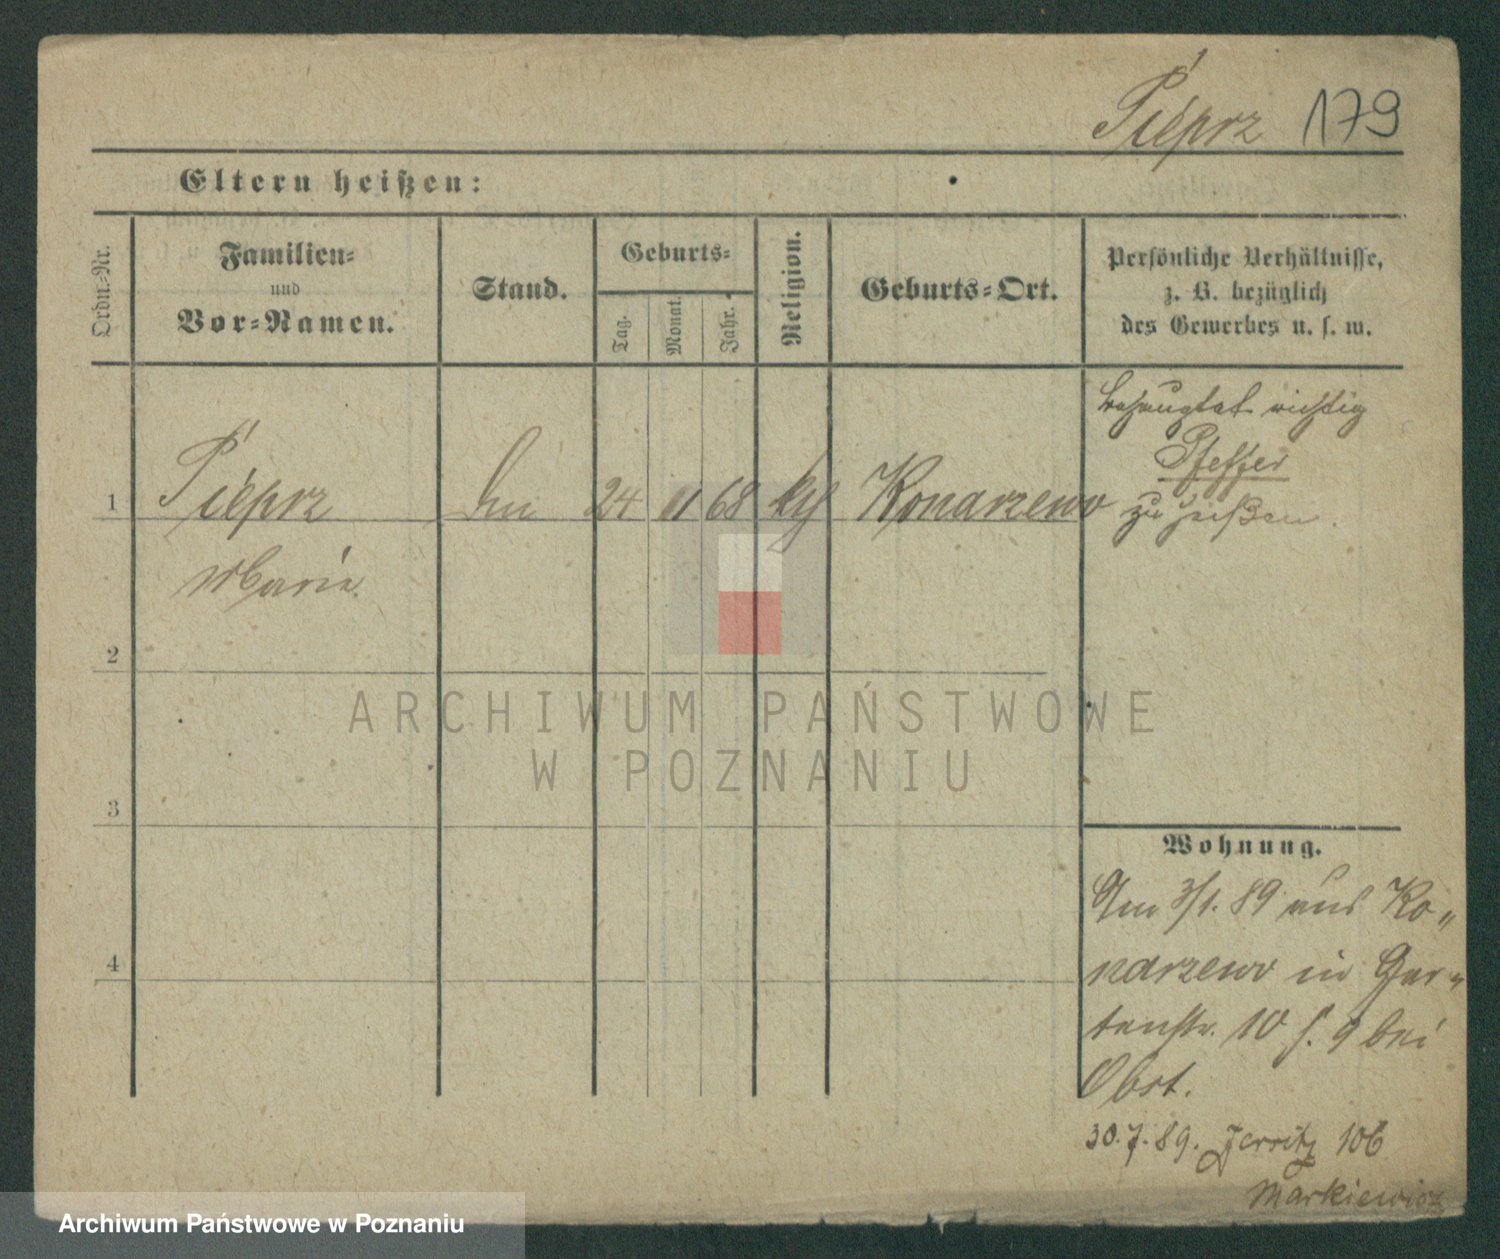 Pieprz 179
Eltern heißen:
Ordn.-Nr.
Familien-
und
Vor-Namen.
Stand.
Geburts-
Tag.
Monat.
Jahr.
Religion.
Geburts-Ort.
Persönliche Verhältnisse,
z. B. bezüglich
des Gewerbes u. s. w.
1 Pieprz 24 11 68 kth Konarzewo
Marie.
behauptet richtig
Pfeffer
zu heißen.
2
3
4
Wohnung.
Am 3/1. 89 aus Ko„
narzewo in Gar„
tenstr. 10 f. 9 bei
Obst.
30.7.89. Jersitz 106
Markiewicz
ARCHIWUM PAŃSTWOWE
W POZNANIU
Archiwum Państwowe w Poznaniu